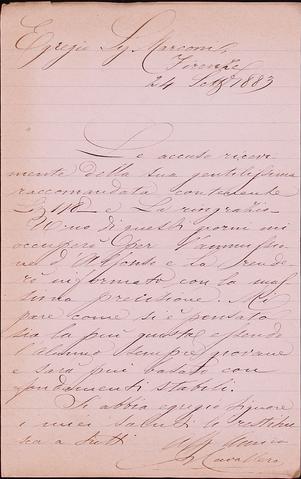 Egregio Sig. Marconi,
Firenze
24 Sett. 1883
Le accuso ricevi-
mente della sua gentilissima
raccomandata contenente
L. 118 e La ringrazio.
Uno di questi giorni mi
occuperò per l'ammissio-
ne d'Alfonso e La rende-
rò informato con la mas-
sima precisione. Mi
pare come si è pensato
sia la più giusta essendo
l'alunno sempre giovane
e sarà più basato con
fondamenti stabili.
Si abbia egregio Signore
i miei saluti e restitui-
sca a tutti
Amico
Cavallero